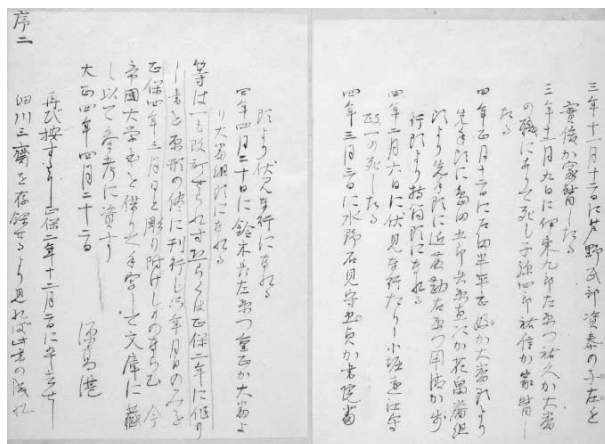 三年十一月十二日に芦野民部資泰の子左近
資俊か家督したる
三年十二月九日に伊東九郎左衛門祐久か大番
の職にありて死し子孫四郎祐信か家督し
たる
四年正月十一日に戸田半平正か大番頭より
先手頭に島田五郎兵衛直次か花畠番組
頭より先手頭に近藤勘右衛門用清か歩
行頭より持筒頭になれる
四年二月六日に伏見奉行たりし小堀遠江守
政一の死したる
四年三月三日に水野石見守忠貞か書院番
頭より伏見奉行になれる
四年四月二十日に鈴木左衛門重正か大番よ
り大番組頭になれる
等は一も改訂せられす恐らくは正保二年に作り
し書を原形の侭に刊行し只年月日のみを
正保四年三月日と彫り附けしものならむ 今
帝国大学本を借り人を写して文庫に蔵
し以て参考に資す
大正四年四月二十二日
源高湛
再び按するに正保二年十二月二日に卒去せし
細川三斎を存録せるより見れば此書の成れ
序二